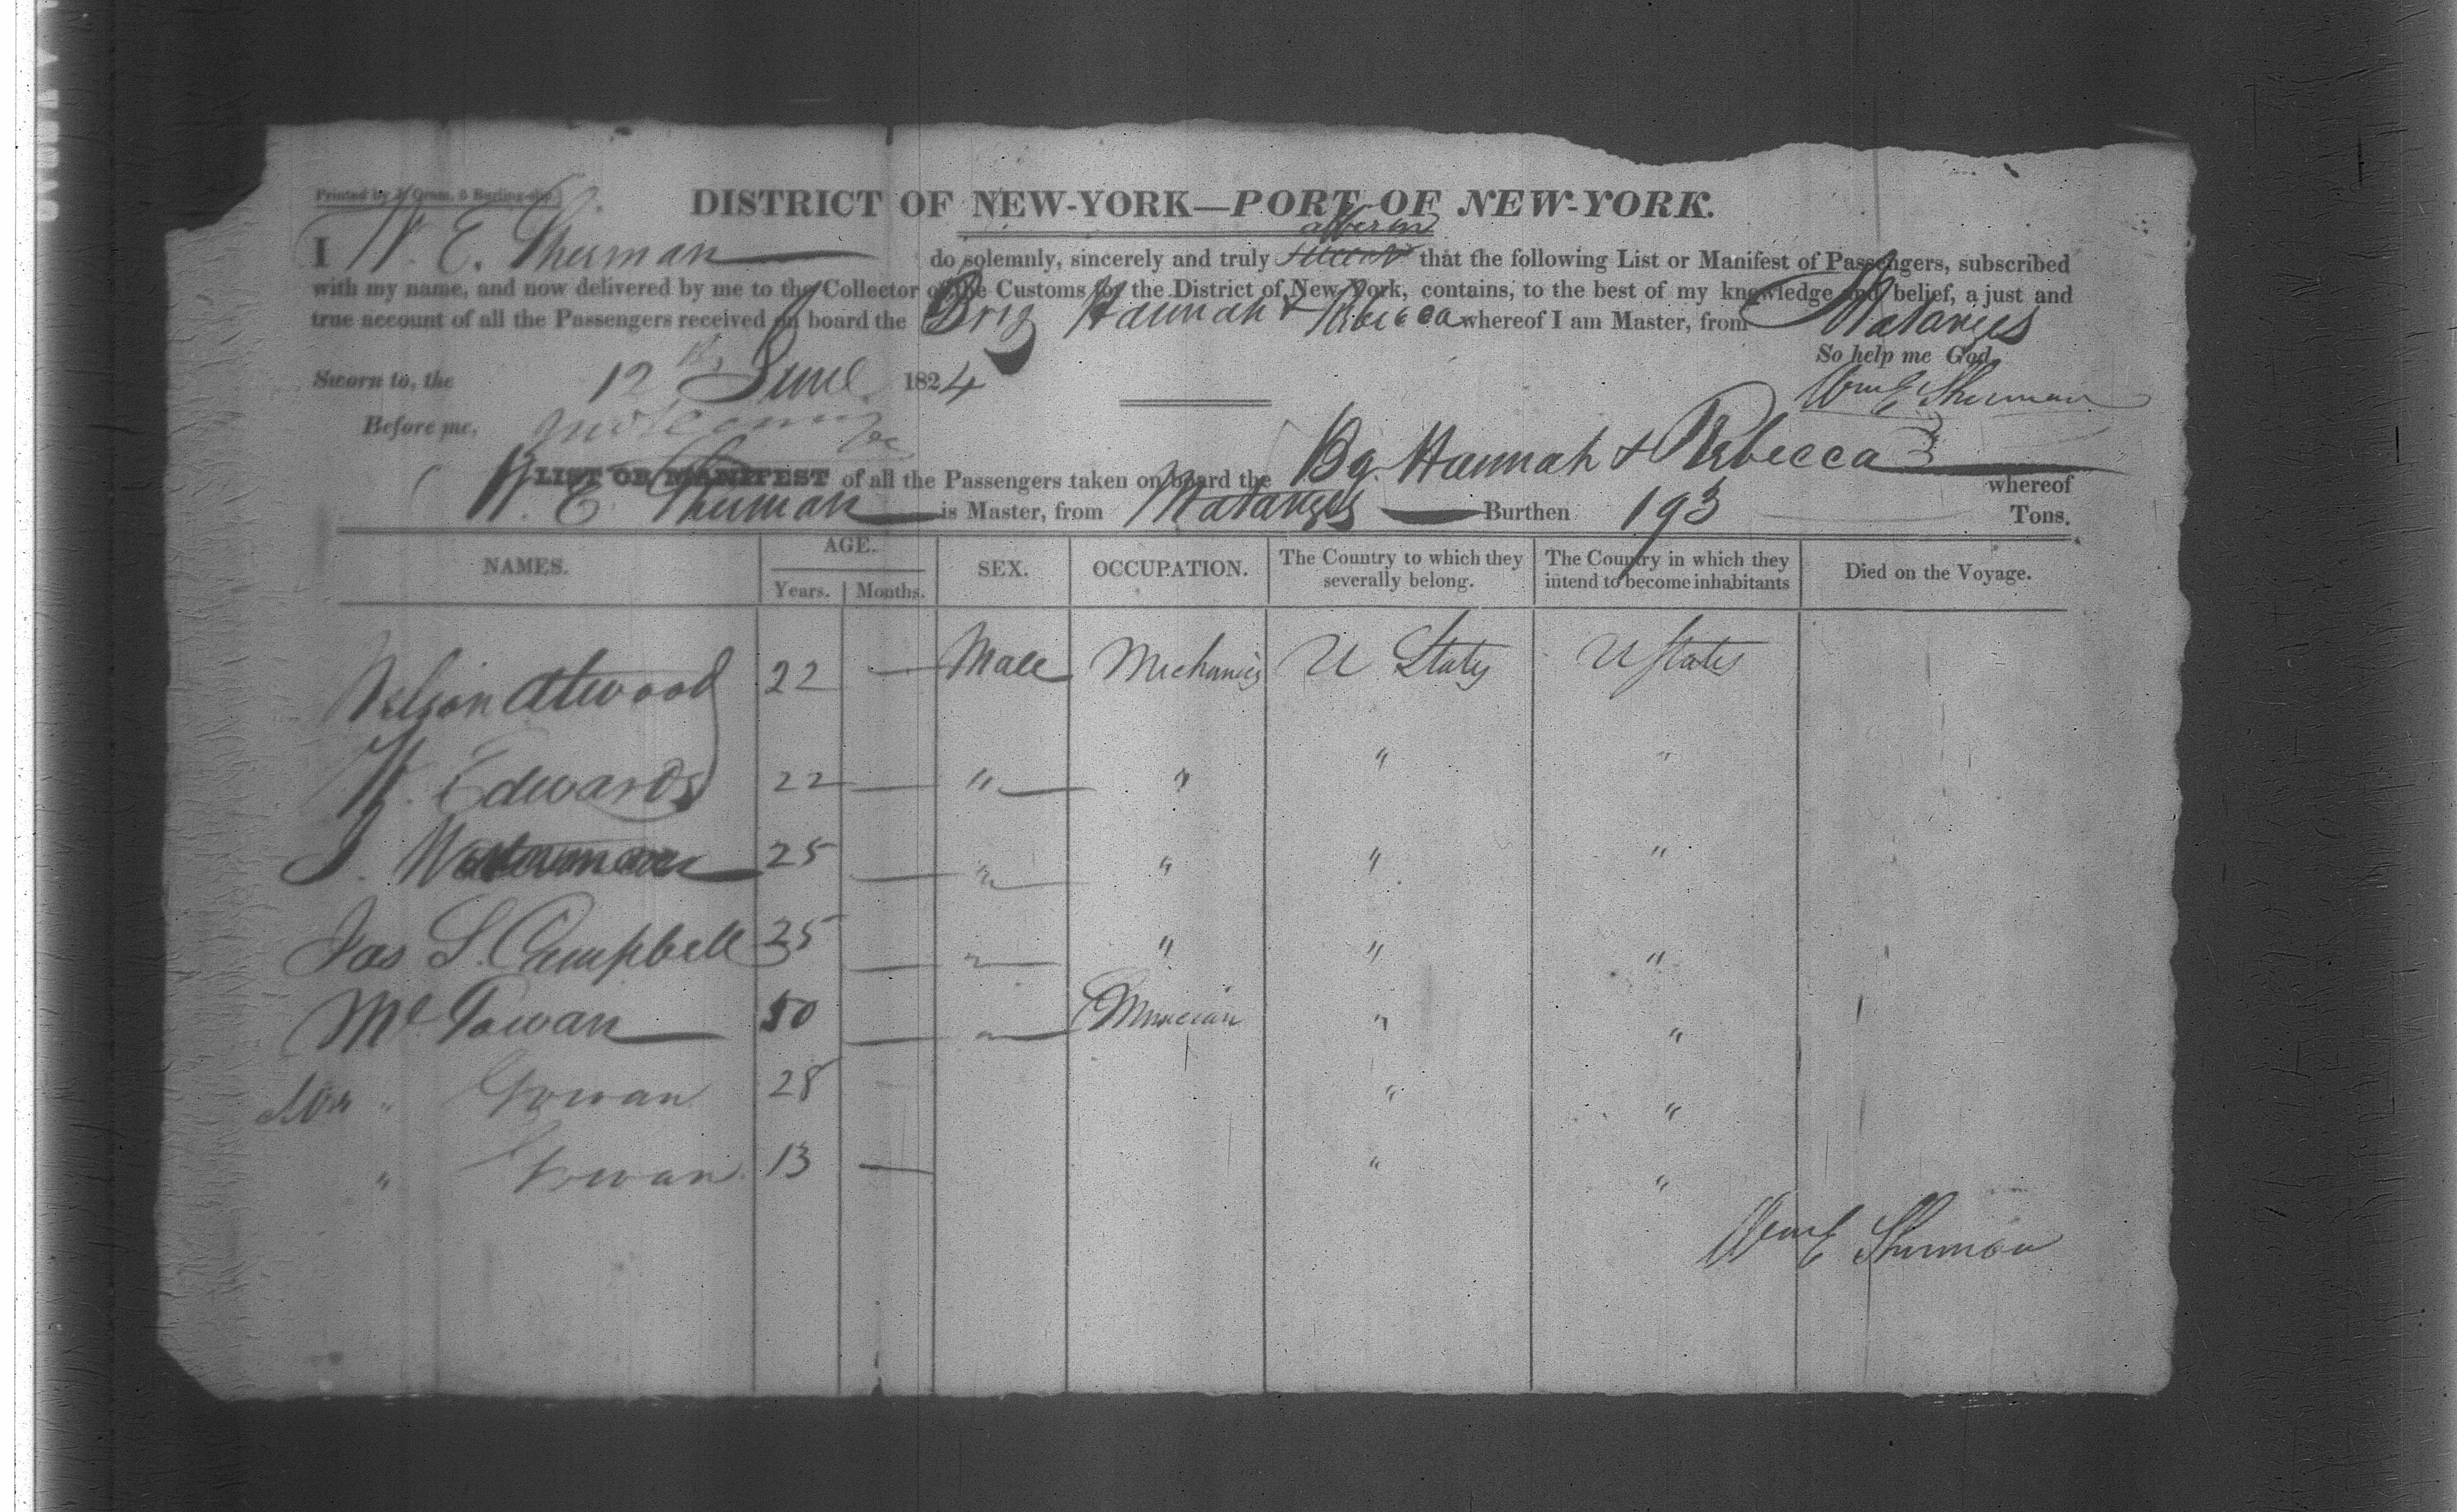 DISTRICT OF NEW-YORK—PORT OF NEW-YORK.
affirm
I W. E. Sherman do solemnly, sincerely and truly swear that the following List or Manifest of Passengers, subscribed
with my name, and now delivered by me to the Collector of the Customs for the District of New York, contains, to the best of my knowledge and belief, a just and
true account of all the Passengers received on board the Brig Hannah & Rebecca whereof I am Master, from Matanzas
So help me God.
Sworn to, the 12th June 1824
Wm E Sherman
Before me,
LIST OR MANIFEST of all the Passengers taken on board the Bg. Hannah & Rebecca whereof
W. E. Sherman is Master, from Matanzas Burthen 193 Tons.
NAMES. AGE. Years. Months. SEX. OCCUPATION. The Country to which they severally belong. The Country in which they intend to become inhabitants Died on the Voyage.
Nelson Atwood 22 — Male Mechanics U States U States
W. Edwards 22 — " " " "
J. 25 — " " " "
Jas S. Campbell 25 — " " " "
Mc Gowan 50 — " Musician " "
Mrs " Gowan 28 " "
" Gowan 13 — " "
Wm E Sherman